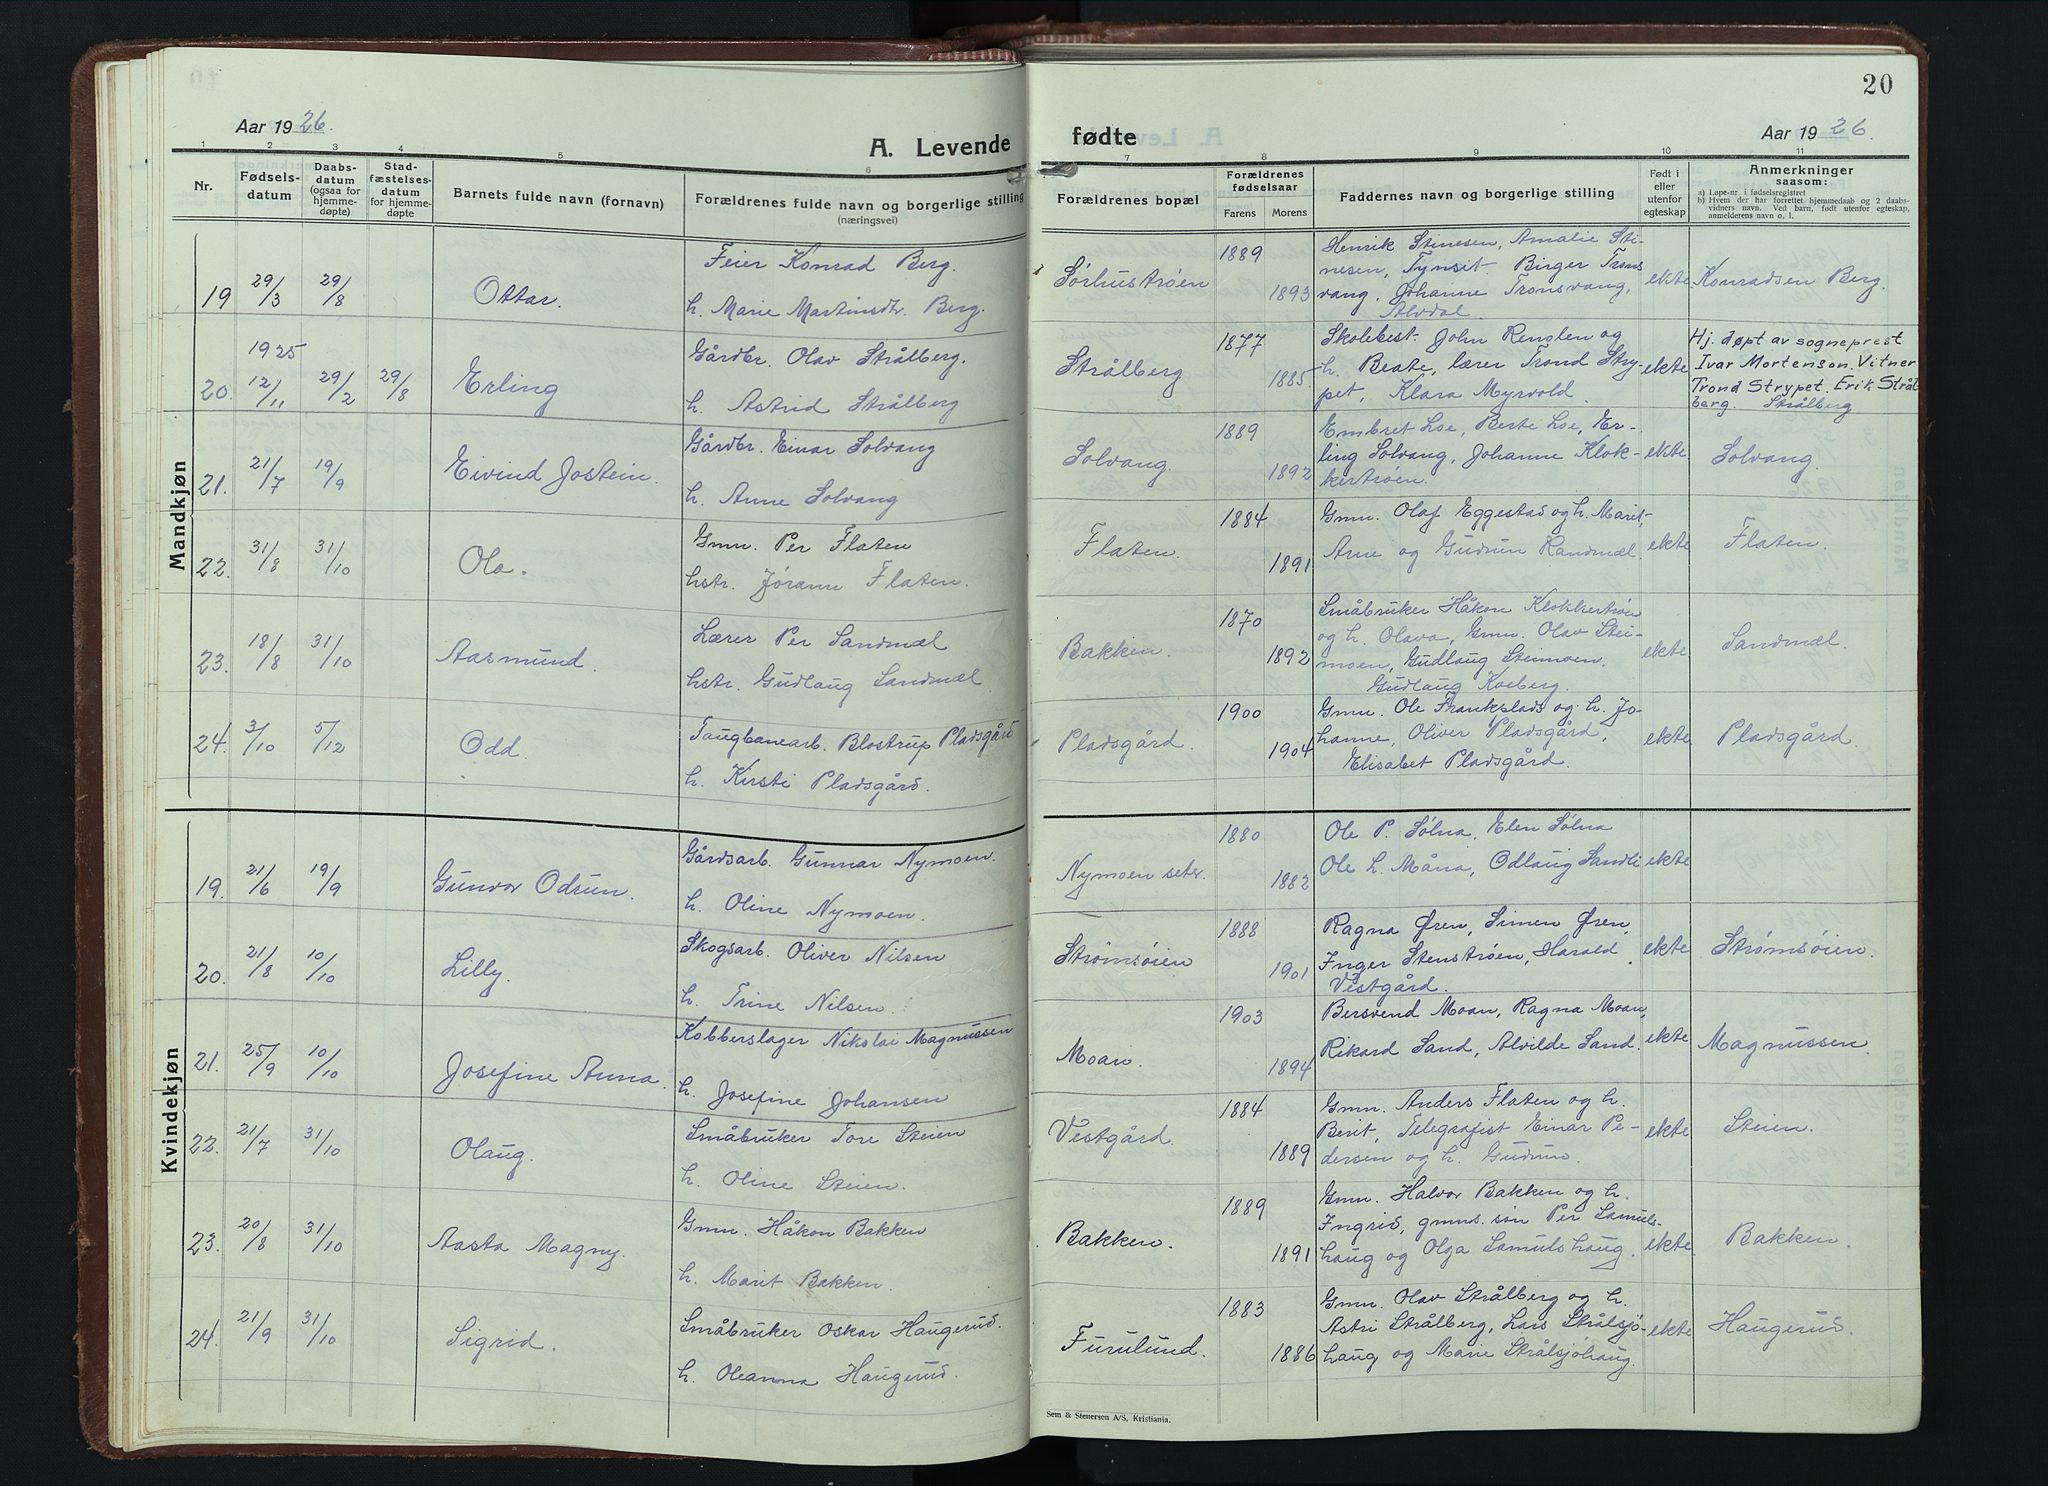 Aar 1926.
A. Levende
1 2 3 4 5 6
Nr.
Fødsels-
datum
Daabs-
datum
(ogsaa for
hjemme-
døpte)
Stad-
fæstelses-
datum
for hjemme-
døpte
Barnets fulde navn (fornavn)
Forældrenes fulde navn og borgerlige stilling
(næringsvei)
Mandkjøn
19 29/3 29/8 Ottar.
Feier Konrad Berg.
h. Marie Martinsdtr. Berg.
1925
20. 12/11 29/2 29/8 Erling
Gårdbr. Olav Strålberg.
h. Astrid Strålberg
21. 21/7 19/9 Eivind Jostein.
Gårdbr. Einar Solvang
h. Anne Solvang
22. 31/8 31/10 Ola.
Gmn. Per Flaten
hstr. Jørann Flaten.
23. 18/8 31/10 Aasmund.
Lærer Per Sandmæl
hstr. Gudlaug Sandmæl
24. 3/10 5/12 Odd.
Taugbanearb. Blostrup Pladsgård
h. Kirsti Pladsgård.
Kvindekjøn
19. 21/6 19/9 Gunvor Odrun.
Gårdsarb. Gunnar Nymoen.
h. Oline Nymoen.
20. 21/8 10/10 Lilly.
Skogsarb. Oliver Nilsen
h. Trine Nilsen.
21. 25/9 10/10 Josefine Anna.
Kobberslager Nikolai Magnussen
h. Josefine Johansen
22. 21/7 31/10 Olaug.
Småbruker Tore Steien
h. Oline Steien.
23. 20/8 31/10 Aasta Magny.
Gmn. Håkon Bakken
h. Marit Bakken.
24. 21/9 31/10 Sigrid.
Småbruker Oskar Haugerud.
h. Oleanna Haugerud.
20
fødte
Aar 1926.
7 8 9 10 11
Forældrenes bopæl
Forældrenes
fødselsaar
Farens Morens
Faddernes navn og borgerlige stilling
Født i
eller
utenfor
egteskap
Anmerkninger
saasom:
a) Løpe-nr i fødselsregistret
b) Hvem der har forrettet hjemmedaab og 2 daabs-
vidners navn. Ved barn, født utenfor egteskap,
anmelderens navn o. l.
Sørhustrøen 1889 1893
Henrik Stinesen, Amalie Sti-
nesen, Tynset. Birger Trons
vang, Johanne Tronsvang,
Alvdal.
ekte Konradsen Berg.
Strålberg 1877 1885
Skolebest. John Renolen og
h. Beate, lærer Trond Stry-
pet, Klara Myrvold.
ekte
Hj. døpt av sogneprest
Ivar Mortenson. Vitner
Trond Strypet. Erik Strål
berg. Strålberg
Solvang. 1889 1892
Embret Loe, Berte Loe, Er-
ling Solvang, Johanne Klok-
kertrøen.
ekte Solvang.
Flaten. 1884 1891
Gmn. Olaf Eggestad og h. Marit,
Arne og Gudrun Randmæl
ekte Flaten.
Bakken. 1870 1892
Småbruker Håkon Klokkertrøen
og h. Olava, Gmn. Olav Stei-
moen, Gudlaug Steimoen.
Gudlaug Koeberg.
ekte Sandmæl.
Pladsgård. 1900 1904
Gmn. Ole Frankslads og h. Jo-
hanne, Oliver Pladsgård,
Elisabet Pladsgård.
ekte Pladsgård.
Nymoen seter. 1880 1882
Ole P. Sølna, Elen Sølna
Ole h. Måna, Odlaug Sandli
ekte
Strømsøien 1888 1901
Ragna Øren, Simen Øren,
Inger Stenstrøen, Harald
Vestgård.
ekte Strømsøien.
Moan. 1903 1894
Bersvend Moan, Ragna Moan,
Rikard Sand, Alvilde Sand.
ekte Magnussen.
Vestgård. 1884 1889
Gmn. Anders Flaten og h.
Berit, Telegrafist Einar Pe-
dersen og h. Gudrun.
ekte Steien.
Bakken. 1889 1891
Gmn. Halvor Bakken og h.
Ingrid, gmns. søn Per Samuls-
haug og Olga Samulshaug.
ekte. Bakken.
Furulund. 1883 1886
Gmn. Olav Strålberg og h.
Astri Strålberg, Lars Strålsjø-
haug og Marie Strålsjøhaug.
ekte Haugerud.
Sem & Stenersen A/S, Kristiania.